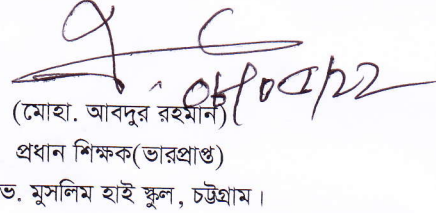 ০৮/০৫/২২
(মোহা. আবদুর রহমান)
প্রধান শিক্ষক(ভারপ্রাপ্ত)
ভ. মুসলিম হাই স্কুল, চট্টগ্রাম।